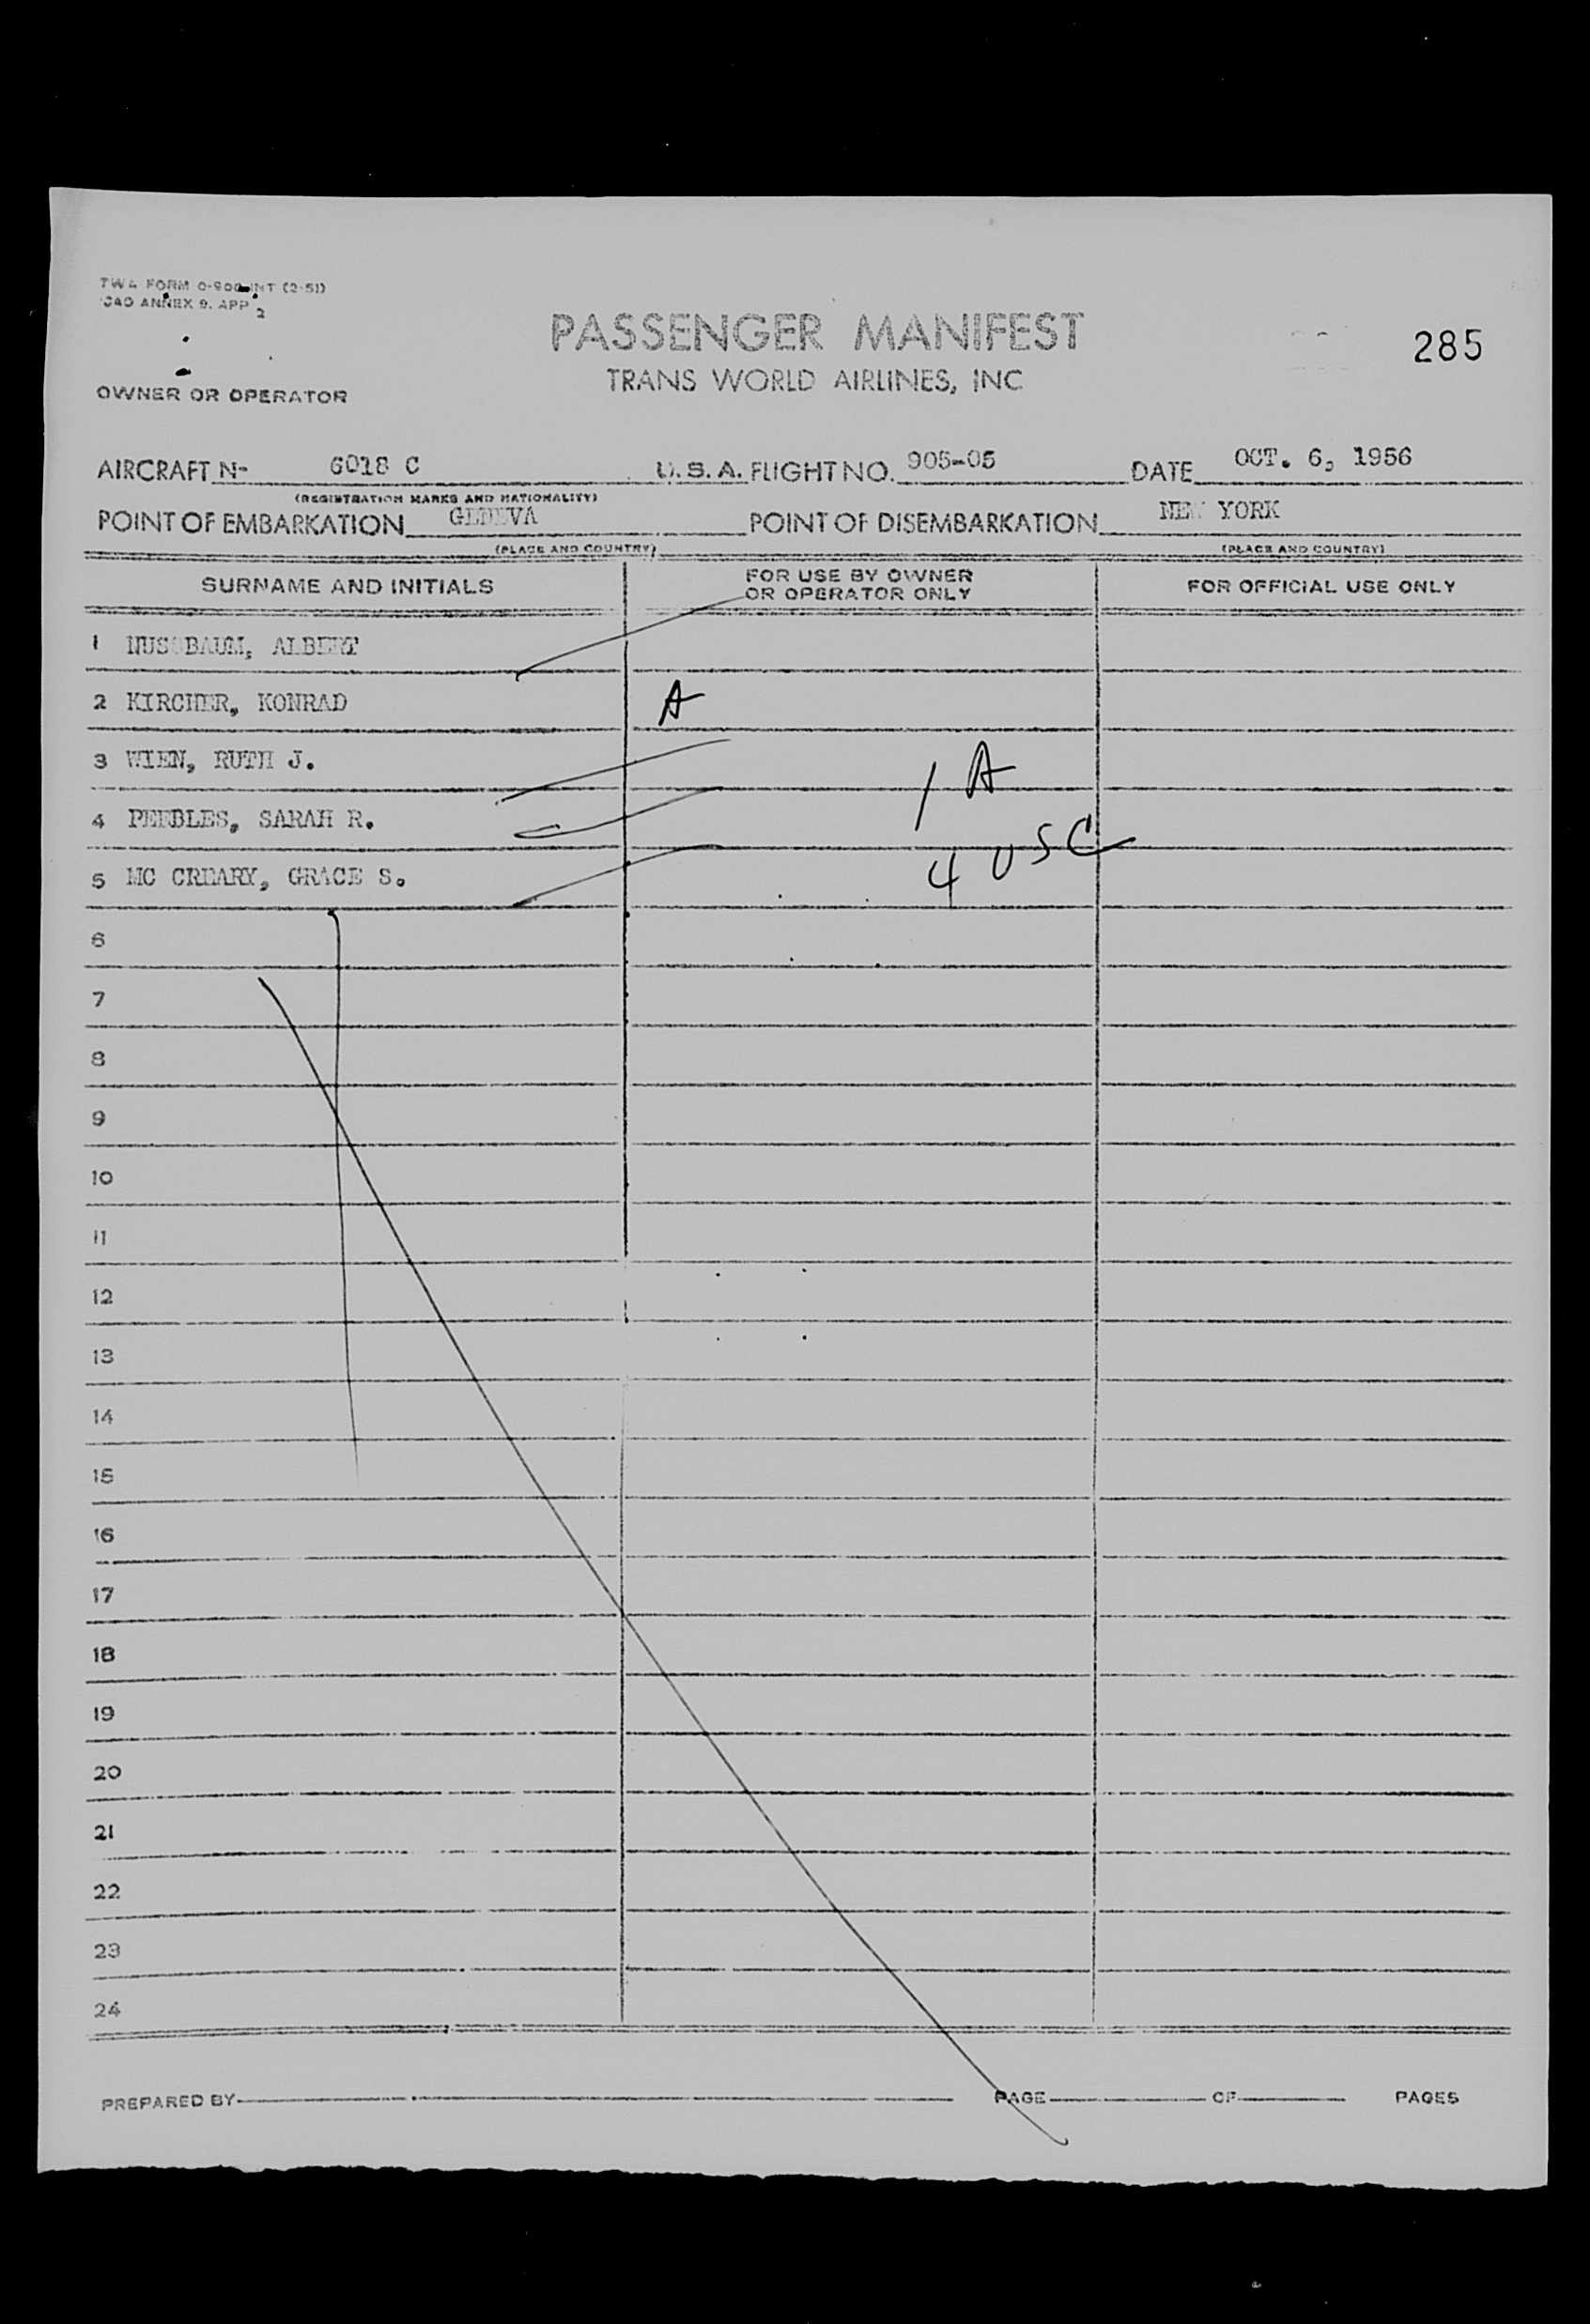 TWA FORM 0-900-INT (2-51)
ICAO ANNEX 9. APP 2
PASSENGER MANIFEST
285
TRANS WORLD AIRLINES, INC
OWNER OR OPERATOR
AIRCRAFT N- 6018 C U.S.A. FLIGHT NO. 905-05 DATE OCT. 6, 1956
(REGISTRATION MARKS AND NATIONALITY)
POINT OF EMBARKATION GENEVA POINT OF DISEMBARKATION NEW YORK
(PLACE AND COUNTRY) (PLACE AND COUNTRY)
SURNAME AND INITIALS FOR USE BY OWNER OR OPERATOR ONLY FOR OFFICIAL USE ONLY
1 NUSSBAUM, ALBERT
2 KIRCHER, KONRAD A
3 WIEN, RUTH J. 1 A
4 PEEBLES, SARAH R.
5 MC CREARY, GRACE S. 4 USC
6
7
8
9
10
11
12
13
14
15
16
17
18
19
20
21
22
23
24
PREPARED BY PAGE OF PAGES